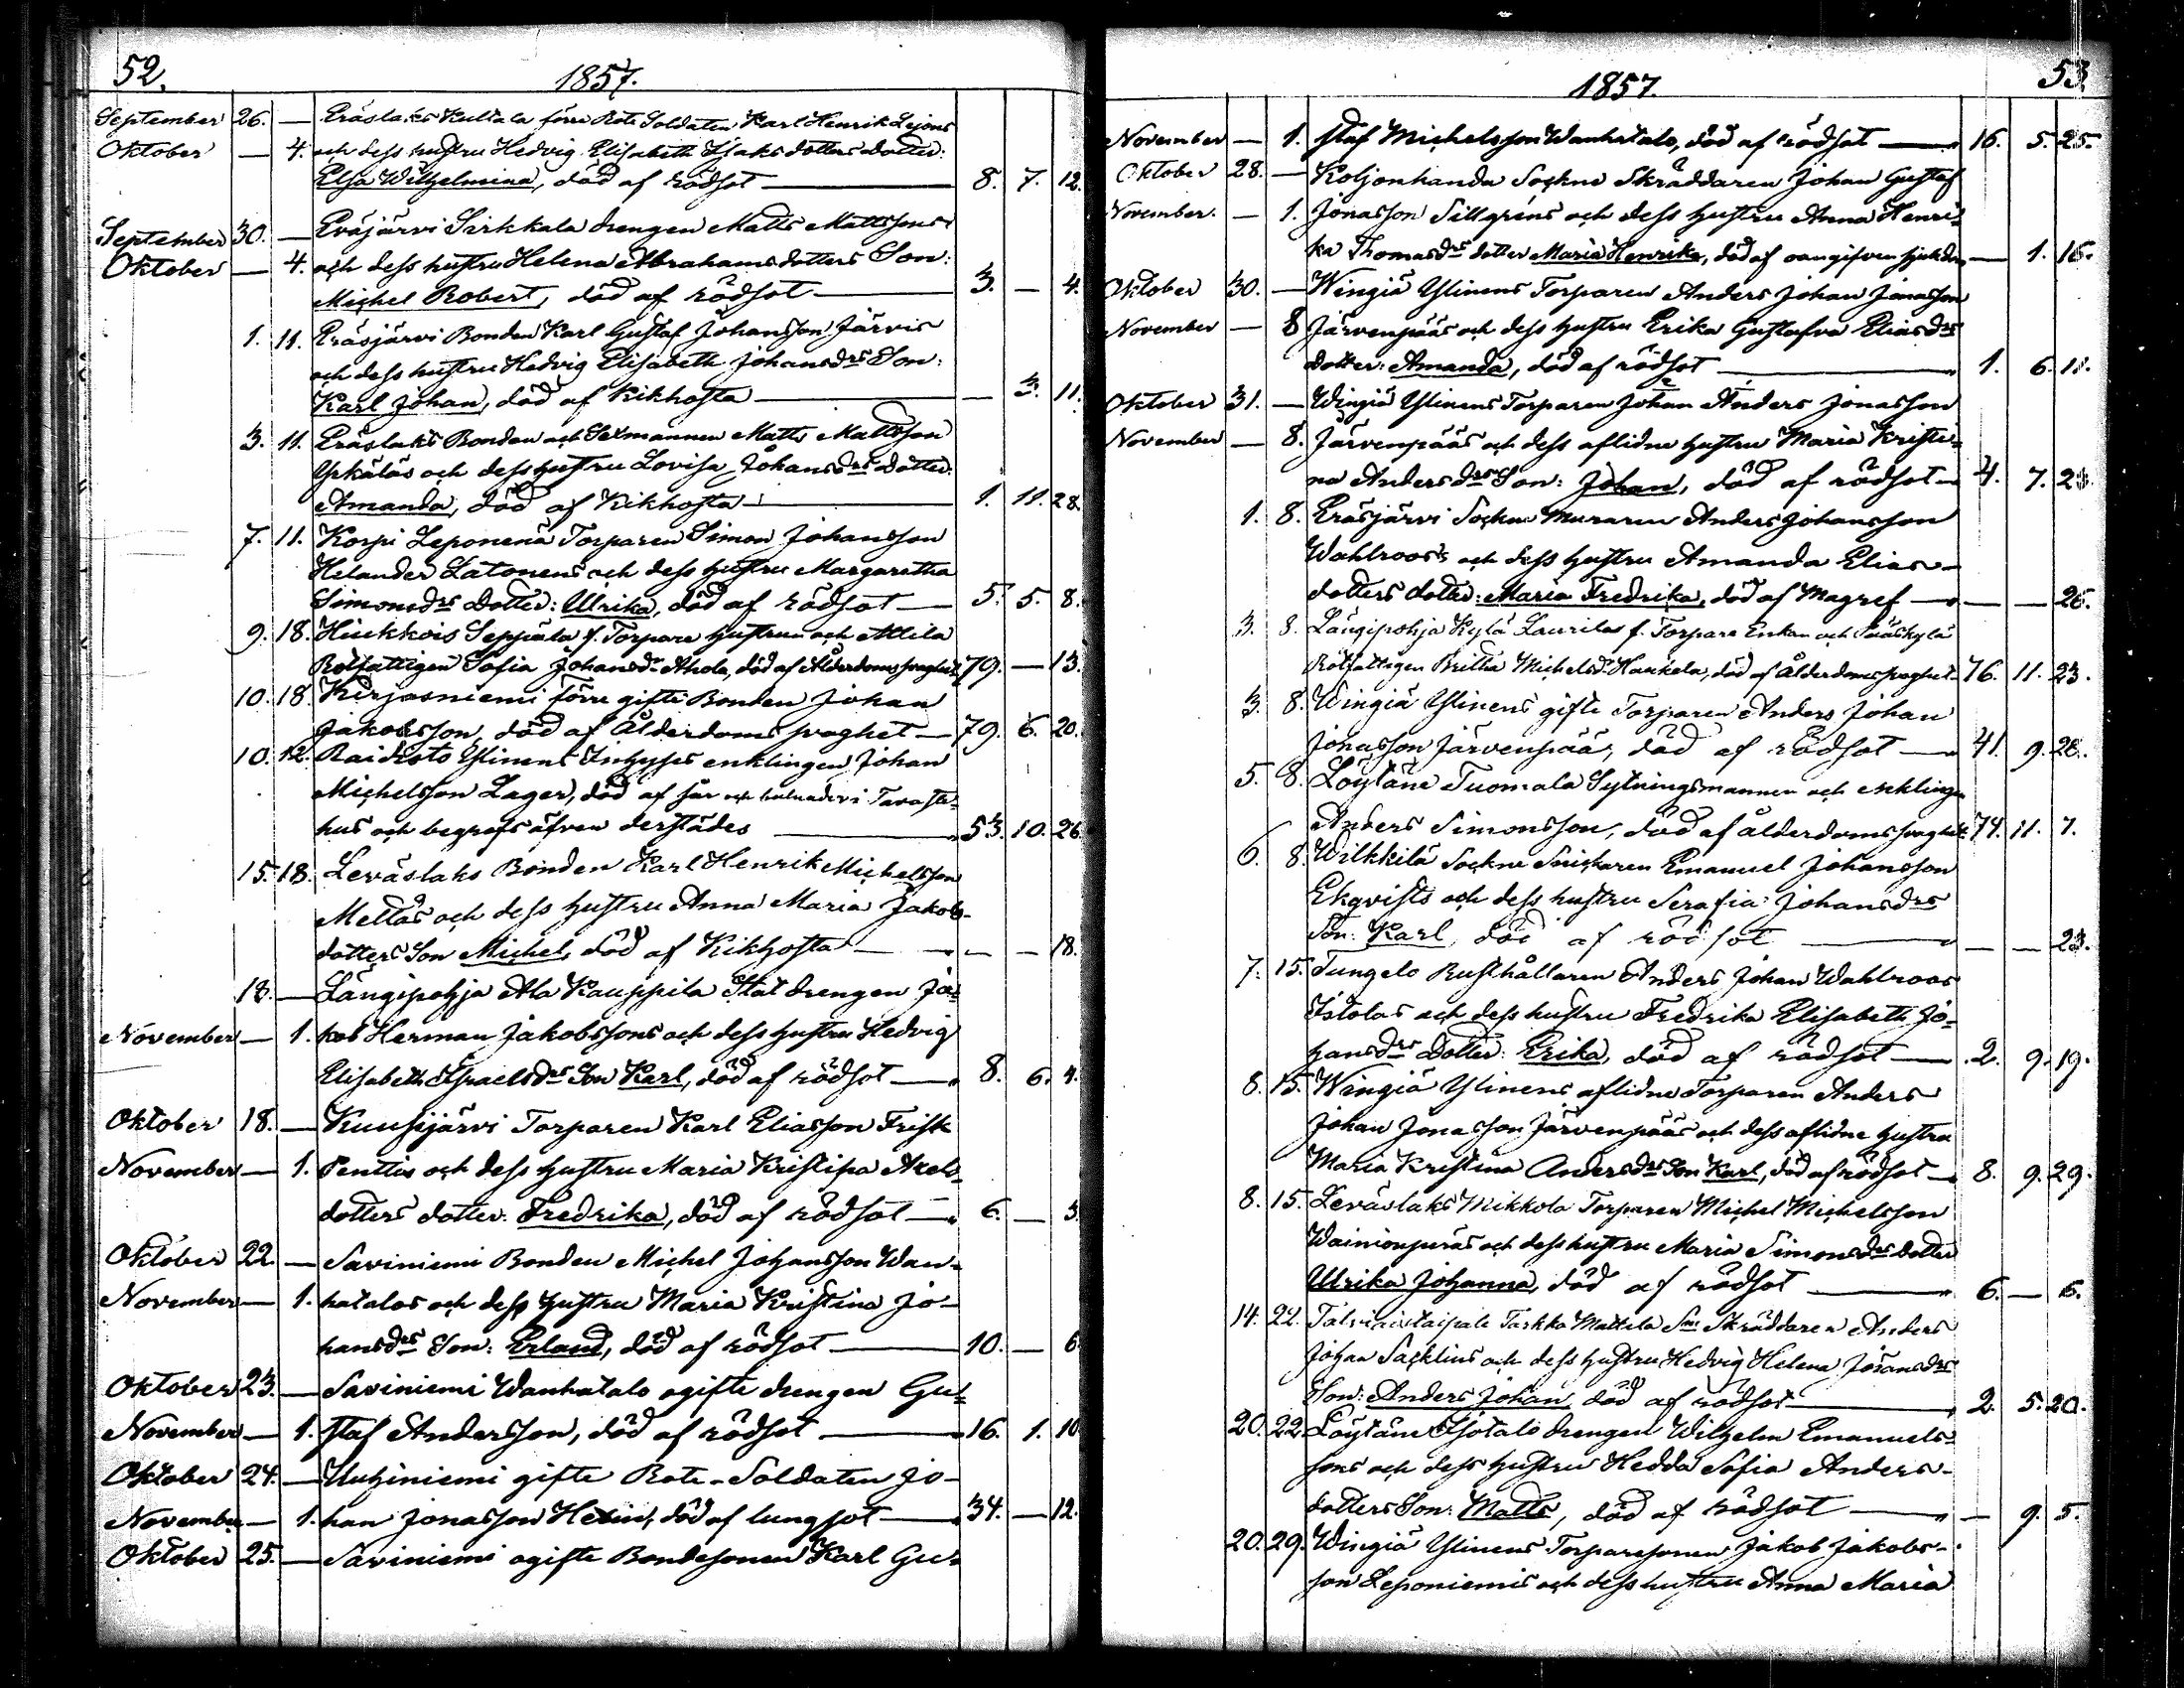 52.
1857.
September 26. — Eräslaks Kultala förre Rote Soldaten Karl Henrik Lejons
Oktober — 4. och dess hustru Hedvig Elisabeth Isaks dotters dotter:
Elsa Wilhelmina, död af rödsot — 8. 7. 12.
September 30. — Eräjärvi Sirkkala drengen Matts Mattssons
Oktober — 4. och dess hustru Helena Abrahamsdotters Son:
Michel Robert, död af rödsot — 3. — 4.
1. 11. Eräsjärvi Bonden Karl Gustaf Johansson Järvis
och dess hustru Hedvig Elisabeth Johansdrs Son:
Karl Johan, död af Kikhosta — — 3. 11.
3. 11. Eräslaks Bonden och Sexmannen Matts Mattsson
Ypkäläs och dess hustru Lovisa Johansdrs dotter:
Amanda, död af Kikhosta — 1. 11. 28.
7. 11. Korpi Leponenä Torparen Simon Johansson
Helander Latonens och dess hustru Margaretha
Simonsdrs Dotter: Ulrika, död af rödsot — 5. 5. 8.
9. 18. Hiukkois Seppälä f. Torpare hustrun och Attila
Rotfattigen Sofia Johansdr Ahola, död af Ålderdomssvaghet 79. — 13.
10. 18. Kirjasniemi förre gifte Bonden Johan
Jakobsson, död af Ålderdomssvaghet — 79. 6. 20.
10. 12. Raidisto Ylinens Inhyses enklingen Johan
Michelsson Lager, död af sår och bulnader i Tavaste-
hus och begrofs äfven derstädes — 53. 10. 26.
15. 18. Leväslaks Bonden Karl Henrik Michelsson
Mellas och dess hustru Anna Maria Jakobs-
dotters Son Michel, död af Kikhosta — — — 18.
18. — Längipohja Ala Kauppila Stat drengen Ja-
November — 1. kob Herman Jakobssons och dess hustru Hedvig
Elisabeth Israelsdrs Son Karl, död af rödsot — 8. 6. 4.
Oktober 18. — Kuusijärvi Torparen Karl Eliasson Frisk
November — 1. Penttis och dess hustru Maria Kristina Axels-
dotters dotter: Fredrika, död af rödsot — 6. — 3.
Oktober 22. — Saviniemi Bonden Michel Johansson Wan-
November — 1. hatalos och dess hustru Maria Kristina Jo-
hansdrs Son: Erland, död af rödsot — 10. — 6.
Oktober 23. — Saviniemi Wanhatalo ogifte drengen Gu-
November — 1. staf Andersson, död af rödsot — 16. 1. 10.
Oktober 24. — Uuhiniemi gifte Rote-Soldaten Jo-
November — 1. han Jonasson Hexin, död af lungsot — 34. — 12.
Oktober 25. — Saviniemi ogifte Bondesonen Karl Gu-
1857.
53.
November — 1. staf Michelsson Wanhatalo, död af rödsot — 16. 5. 25.
Oktober 28. — Koljonkanda Sockne Skräddaren Johan Gustaf
November. — 1. Jonasson Sillgréns och dess hustru Anna Henri-
ka Thomasdrs dotter Maria Henrika, död af oangifven sjukdom — 1. 16.
Oktober 30. — Wingiä Ylinens Torparen Anders Johan Jonasson
November — 8 Järvenpääs och dess hustru Erika Gustafva Eliasdrs
dotter: Amanda, död af rödsot — 1. 6. 11.
Oktober 31. — Wingiä Ylinens Torparen Johan Anders Jonasson
November — 8. Järvenpääs och dess aflidne hustru Maria Kristi-
na Andersdrs Son: Johan, död af rödsot — 4. 7. 23.
1. 8. Eräsjärvi Sockne Muraren Anders Johansson
Wahlroos's och dess hustru Amanda Elias-
dotters dotter: Maria Fredrika, död af Magref — — — 26.
3. 8. Längipohja Kylä Laurilas f. Torpare Enkan och Pääskylä
Rotfattigen Britha Michelsdr Haukela, död af ålderdomssvaghet 76. 11. 23.
3. 8. Wingiä Ylinens gifte Torparen Anders Johan
Jonasson Järvenpää, död af rödsot — 41. 9. 28.
5. 8. Löytäne Tuomala Sytningsmannen och enklingen
Anders Simonsson, död af ålderdomssvaghet 74. 11. 7.
6. 8. Wilkkilä Sockne Snickaren Emanuel Johansson
Ekqvists och dess hustru Serafia Johansdrs
Son: Karl, död af rödsot — — — 23.
7. 15. Tungelo Rusthållaren Anders Johan Wahlroos
Istolas och dess hustru Fredrika Elisabeth Jo-
hansdrs Dotter: Erika, död af rödsot — 2. 9. 19.
8. 15. Wingiä Ylinens aflidne Torparen Anders
Johan Jonasson Järvenpääs och dess aflidne hustru
Maria Kristina Andersdrs Son Karl, död af rödsot — 8. 9. 29.
8. 15. Leväslaks Mikkola Torparen Michel Michelsson
Wainionperäs och dess hustru Maria Simonsdrs dotter
Ulrika Johanna, död af rödsot — 6. — 6.
14. 22. Talviaistaipale Tarkka Mattila Sne Skräddaren Anders
Johan Sacklins och dess hustru Hedvig Helena Johansdrs
Son: Anders Johan, död af rödsot — 2. 5. 20.
20. 22. Löytäne Isotalo drengen Wilhelm Emanuels-
sons och dess hustru Hedda Sofia Anders-
dotters Son: Matts, död af rödsot — — 9. 5.
20. 29. Wingiä Ylinens Torparesonen Jakob Jakobs-
son Leponiemis och dess hustru Anna Maria